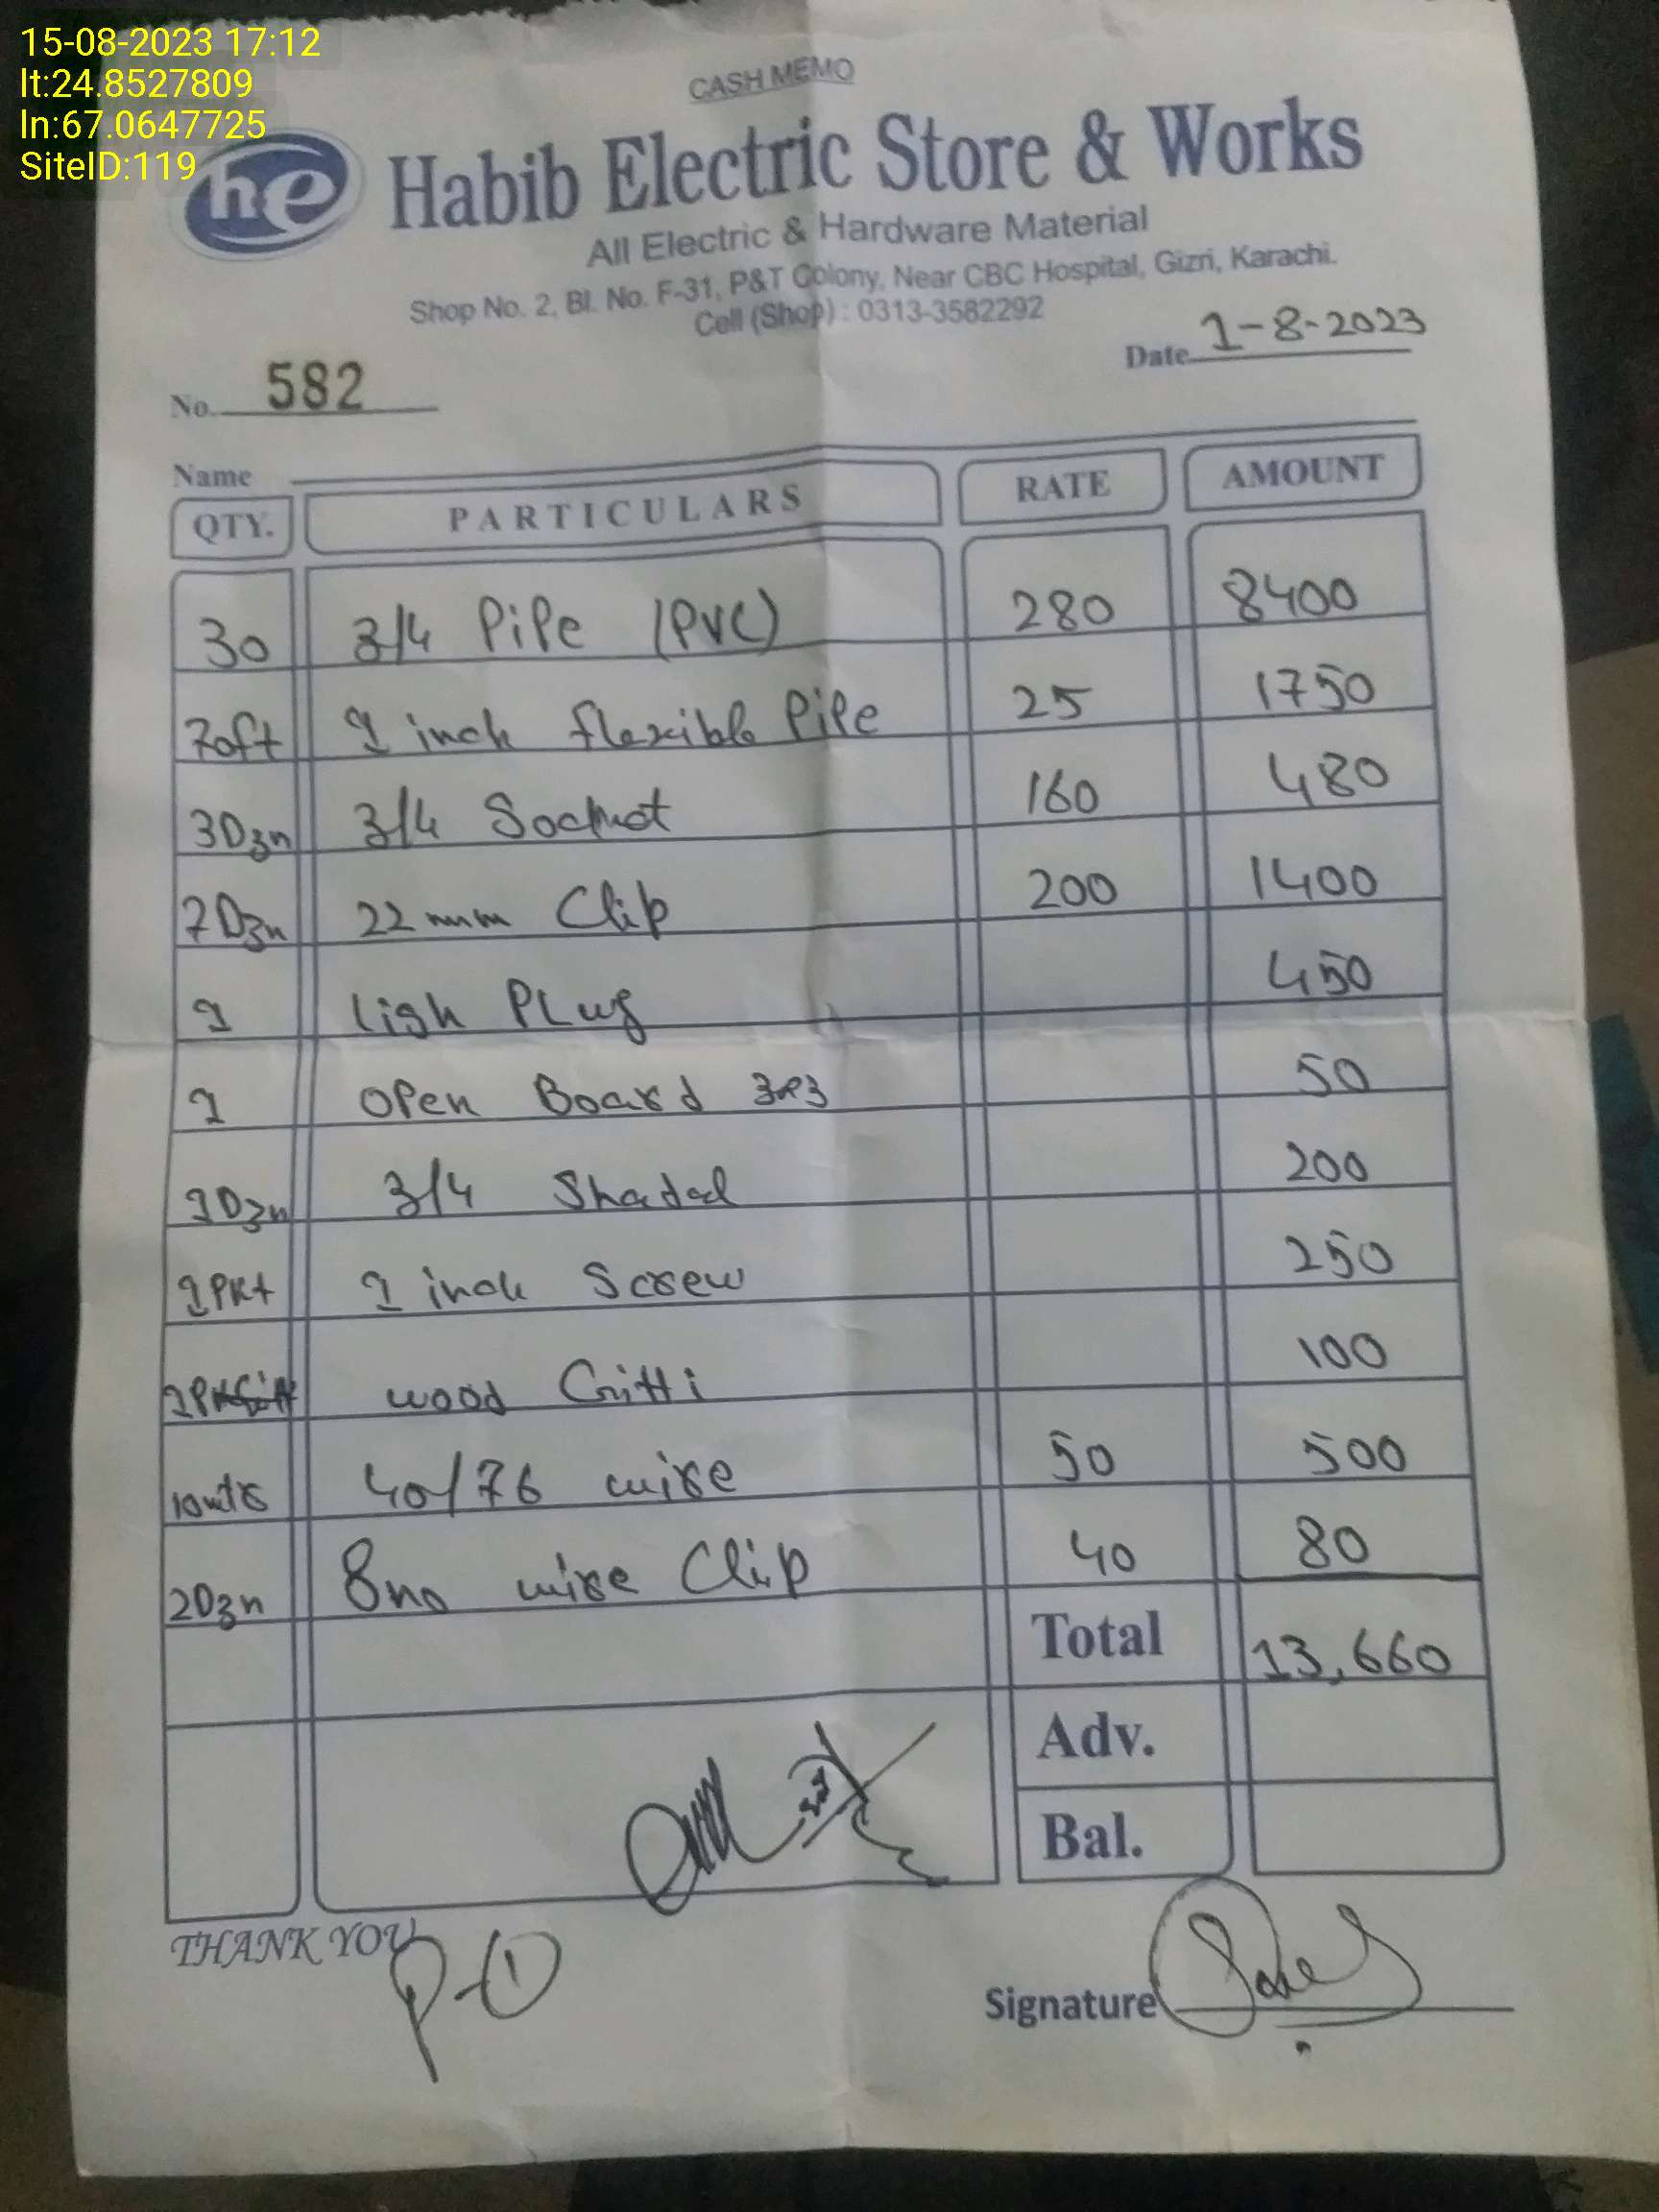 15-08-2023 17:12
lt:24.8527809
ln:67.0647725
SiteID:119
CASH MEMO
he Habib Electric Store & Works
All Electric & Hardware Material
Shop No. 2, Bl. No. F-31, P&T Colony, Near CBC Hospital, Gizri, Karachi.
Cell (Shop) : 0313-3582292
No. 582 Date 1-8-2023
Name
QTY. PARTICULARS RATE AMOUNT
30 3/4 PiPe (PVC) 280 8400
70ft 1 inch flexible PiPe 25 1750
3Dzn 3/4 160 480
7Dzn 22mm Clip 200 1400
1 Ligh PLug 450
1 OPen Board 3x3 50
1Dzn 3/4 200
1PKt 1 inch Screw 250
1PKt wood Gitti 100
10mtr 40/76 wire 50 500
2Dzn 8no wire Clip 40 80
Total 13,660
Adv.
Bal.
THANK YOU
P-1
Signature